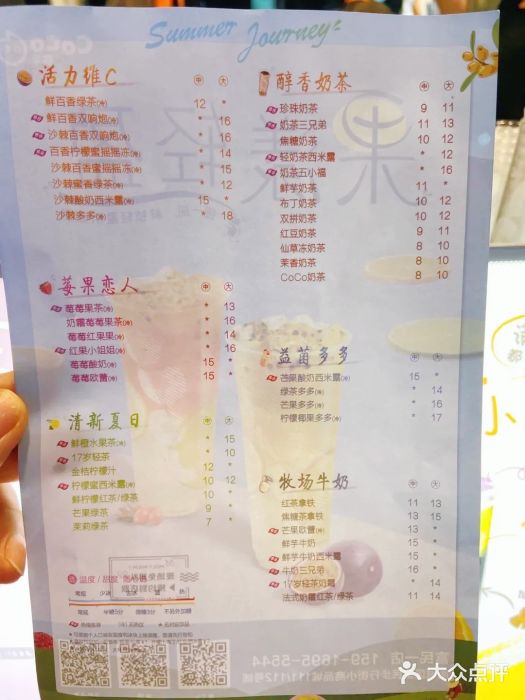 Summer Journey
活力维C 中 大
鲜百香绿茶(冷) 12 *
鲜百香双响炮(冷) * 16
沙棘百香双响炮(冷) * 16
百香柠檬蜜摇摇冻(冷) * 14
沙棘百香蜜摇摇冻(冷) * 15
沙棘蜜香绿茶(冷) * 12
沙棘酸奶西米露(冷) 15 *
沙棘多多(冷) * 18
莓果恋人 中 大
莓莓果茶(冷) * 13
奶霜莓莓果茶(冷) * 16
莓莓红果果(冷) * 14
红果小姐姐(冷) * 16
莓莓酸奶(冷) 15 15
莓莓欧蕾(冷) 15 *
清新夏日 中 大
鲜橙水果茶(冷) * 15
17岁轻茶(冷) * 10
金桔柠檬汁 12 *
柠檬蜜西米露(冷) 10 12
鲜柠檬红茶/绿茶 10 12
芒果绿茶(冷) 9 *
茉莉绿茶(冷) 7 *
醇香奶茶 中 大
珍珠奶茶 9 11
奶茶三兄弟 11 13
焦糖奶茶 10 12
轻奶茶西米露 * 12
奶茶五小福 * 16
鲜芋奶茶 11 *
布丁奶茶 10 12
双拼奶茶 10 12
红豆奶茶 9 11
仙草冻奶茶 8 10
茉香奶茶 8 10
CoCo奶茶 8 10
益菌多多 中 大
芒果酸奶西米露(冷) 15 *
绿茶多多(冷) * 14
芒果多多(冷) * 16
柠檬椰果多多(冷) * 17
牧场牛奶 中 大
红茶拿铁 11 13
焦糖茶拿铁 13 15
芒果欧蕾(冷) 13 *
鲜芋牛奶 * 15
鲜芋牛奶西米露 * 15
牛奶三兄弟 * 16
17岁轻茶奶霜(冷) * 14
法式奶霜红茶/绿茶 11 14
温度/甜度
大众点评